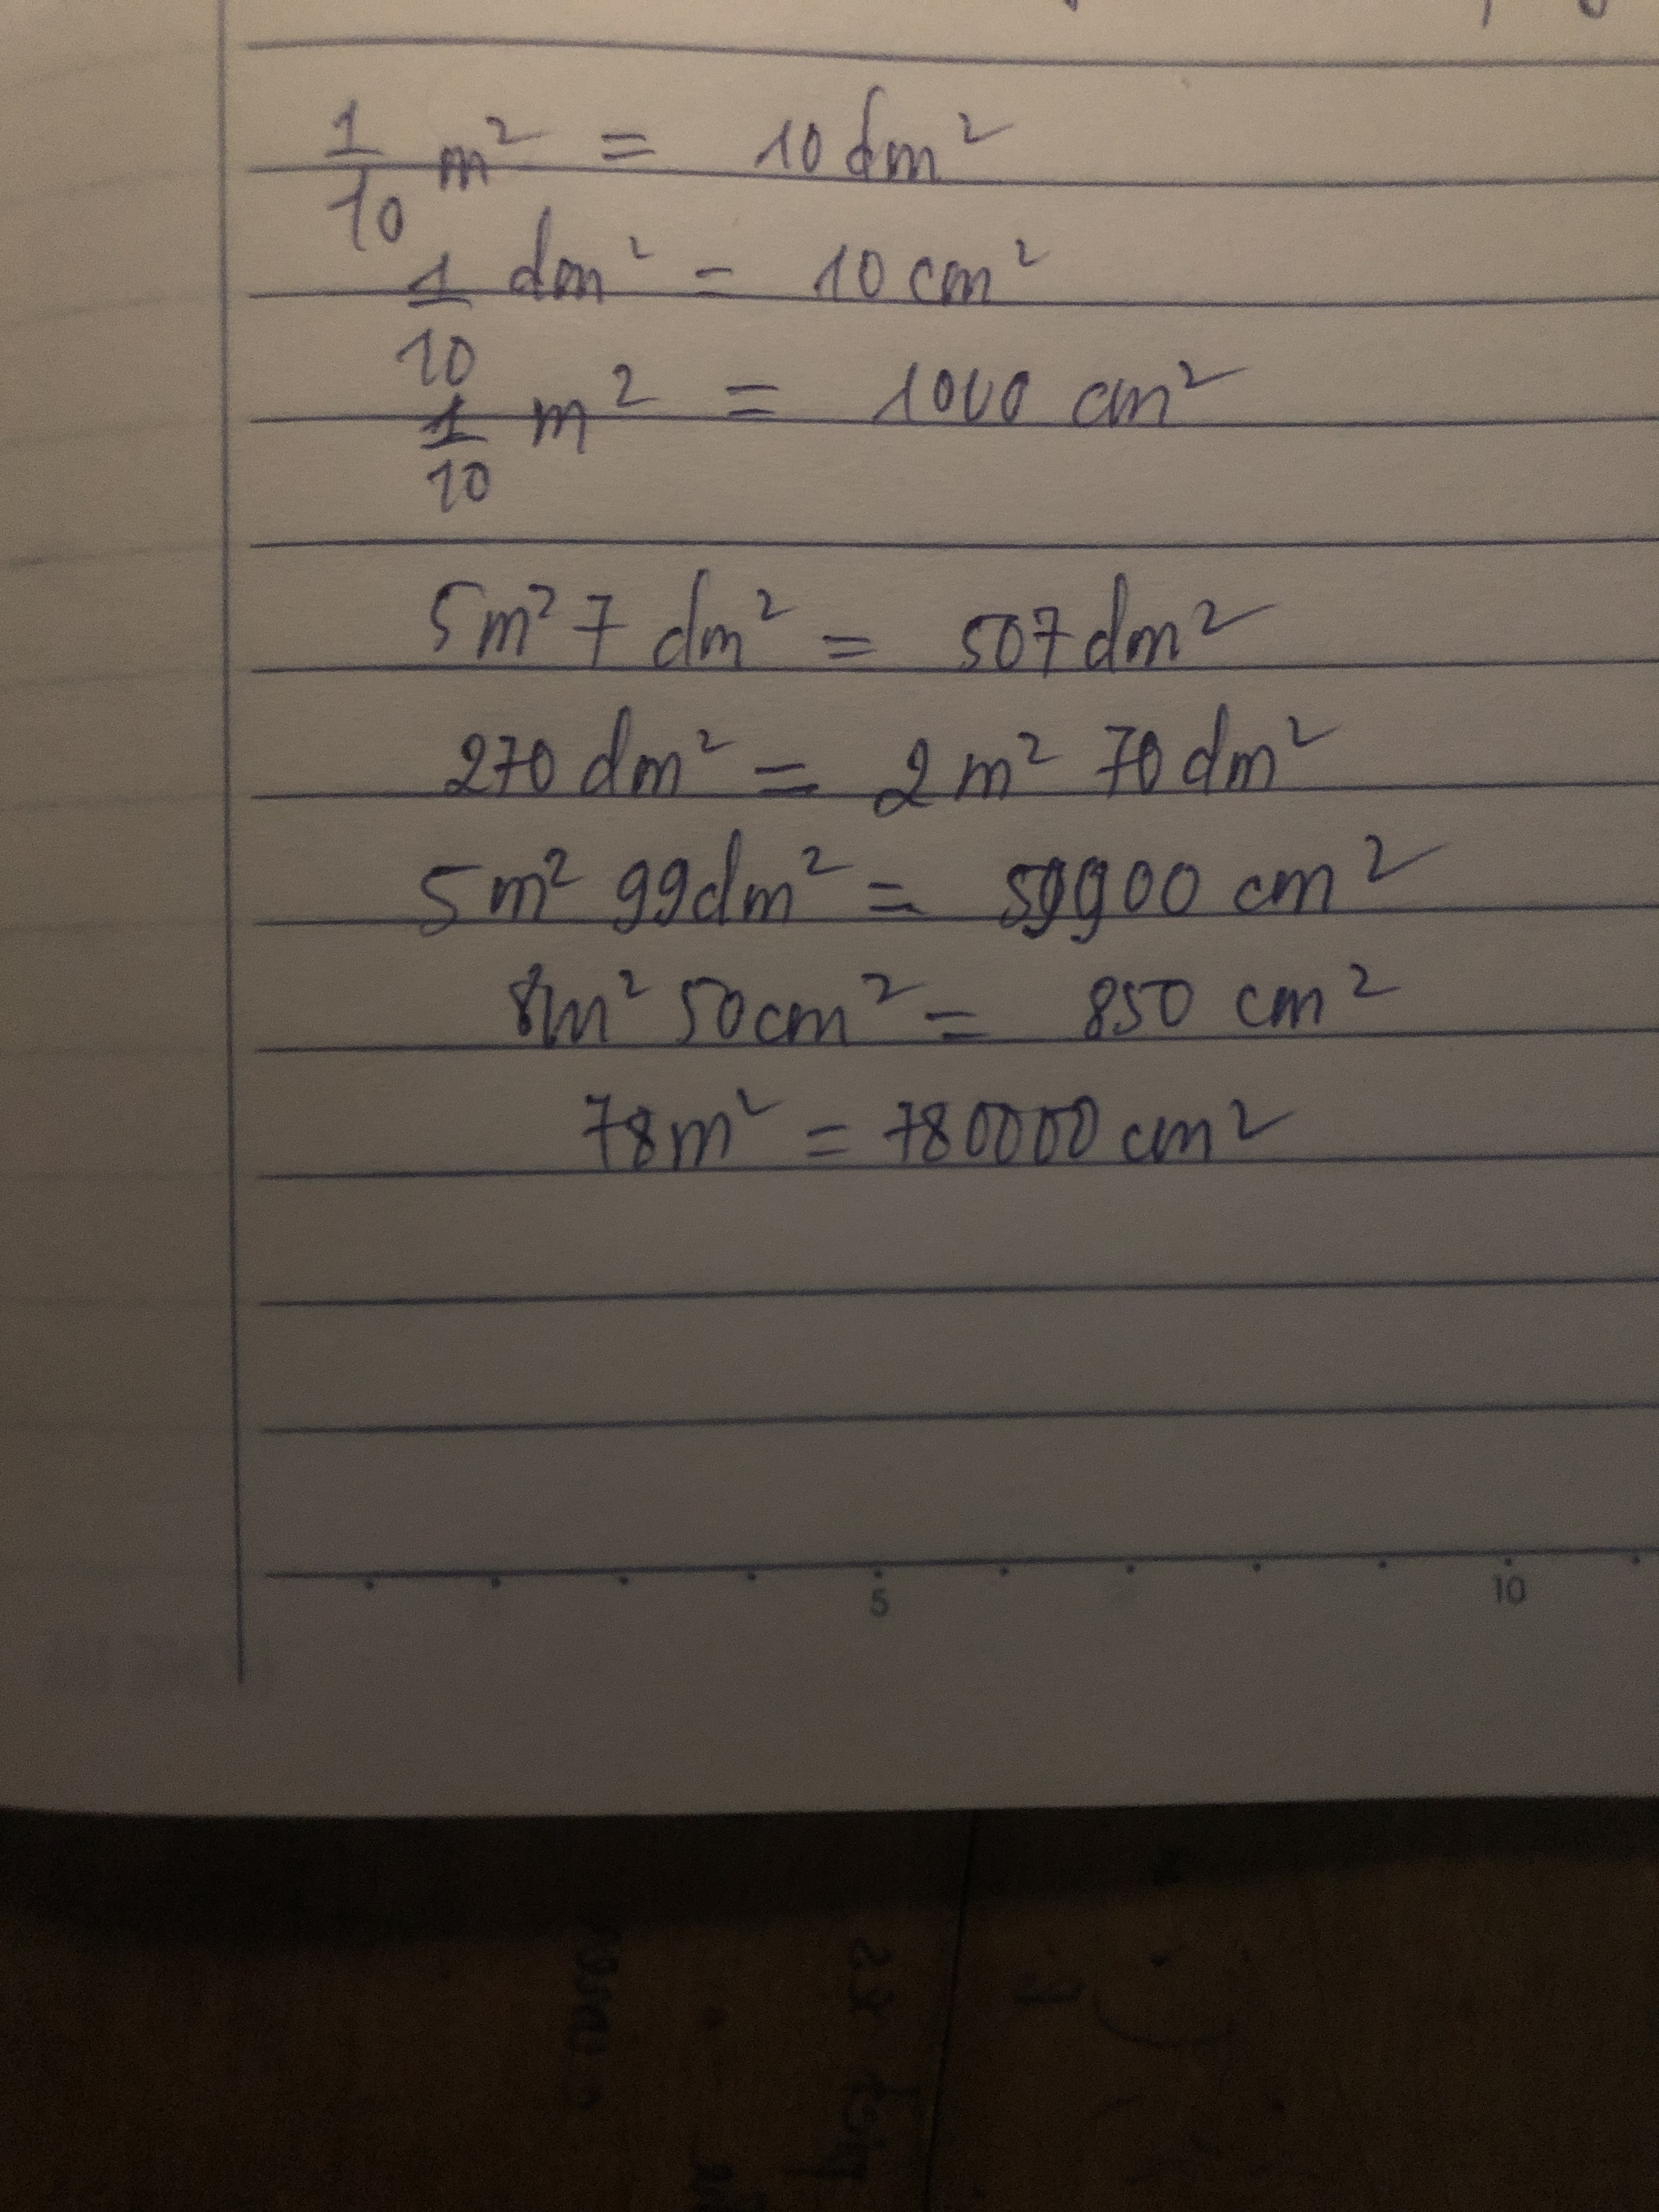 1/10 m² = 10 dm²
1/10 dm² = 10 cm²
1/10 m² = 1000 cm²
5m² 7 dm² = 507 dm²
270 dm² = 2 m² 70 dm²
5m² 99dm² = 59900 cm²
8m² 50cm² = 850 cm²
78m² = 780000 cm²
5 10